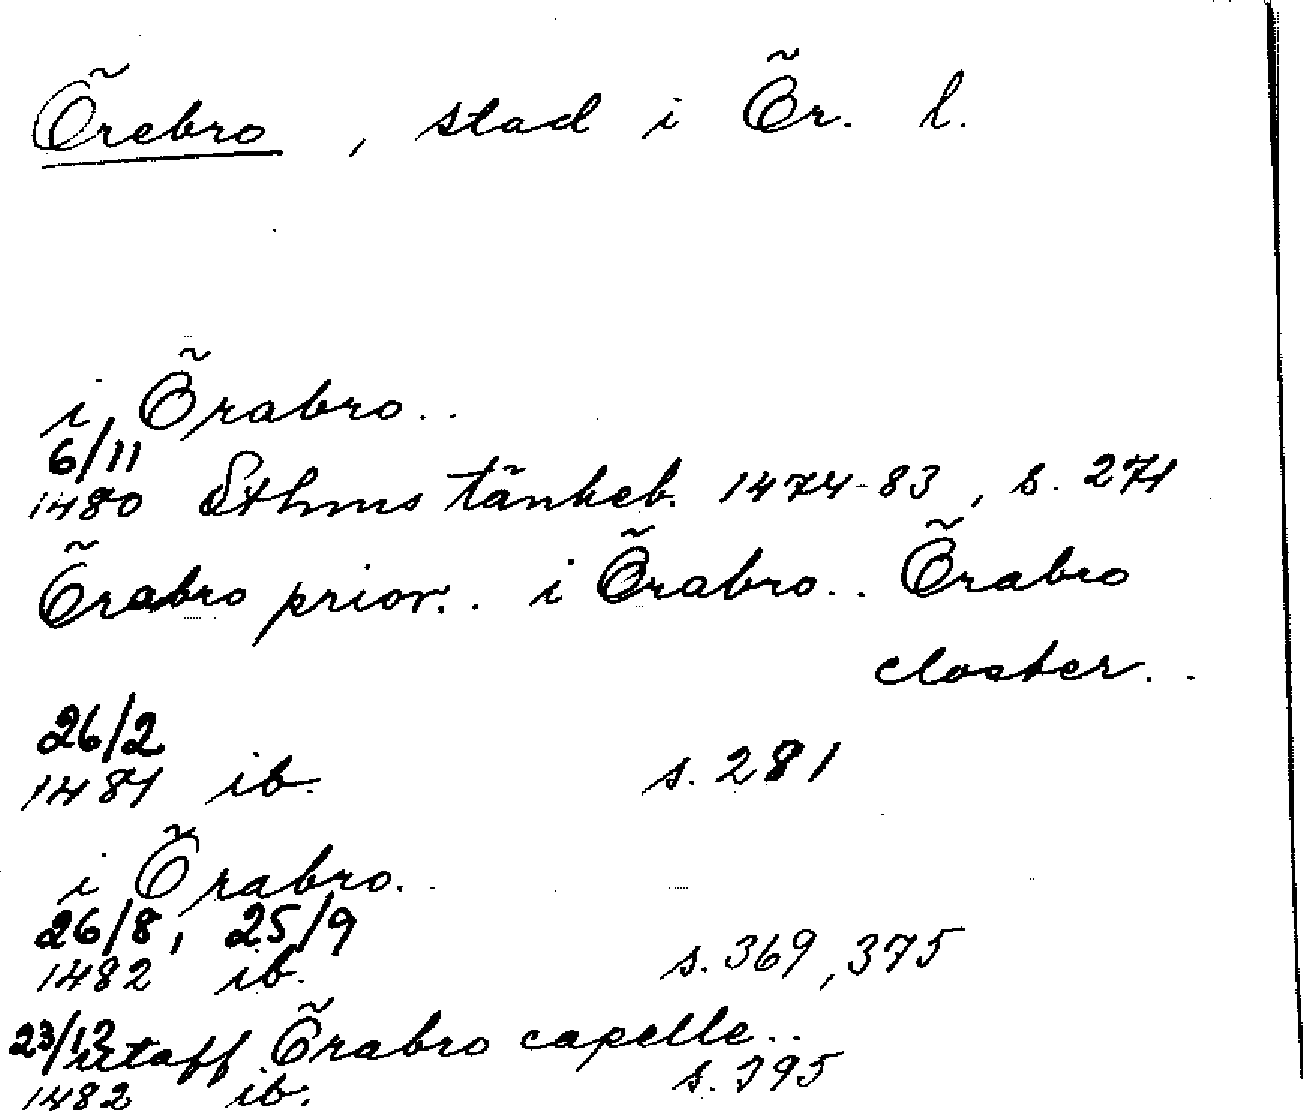 Örebro, stad i Ör. l.
i Örabro..
6/11
1480 Sthms tänkeb. 1474-83, s. 271
Örabro prior.. i Örabro.. Örabro
closter..
26/2
1481 ib. s. 281
i Örabro..
26/8, 25/9
1482 ib. s. 369, 375
23/12 utaff Örabro capelle..
1482 ib. s. 395